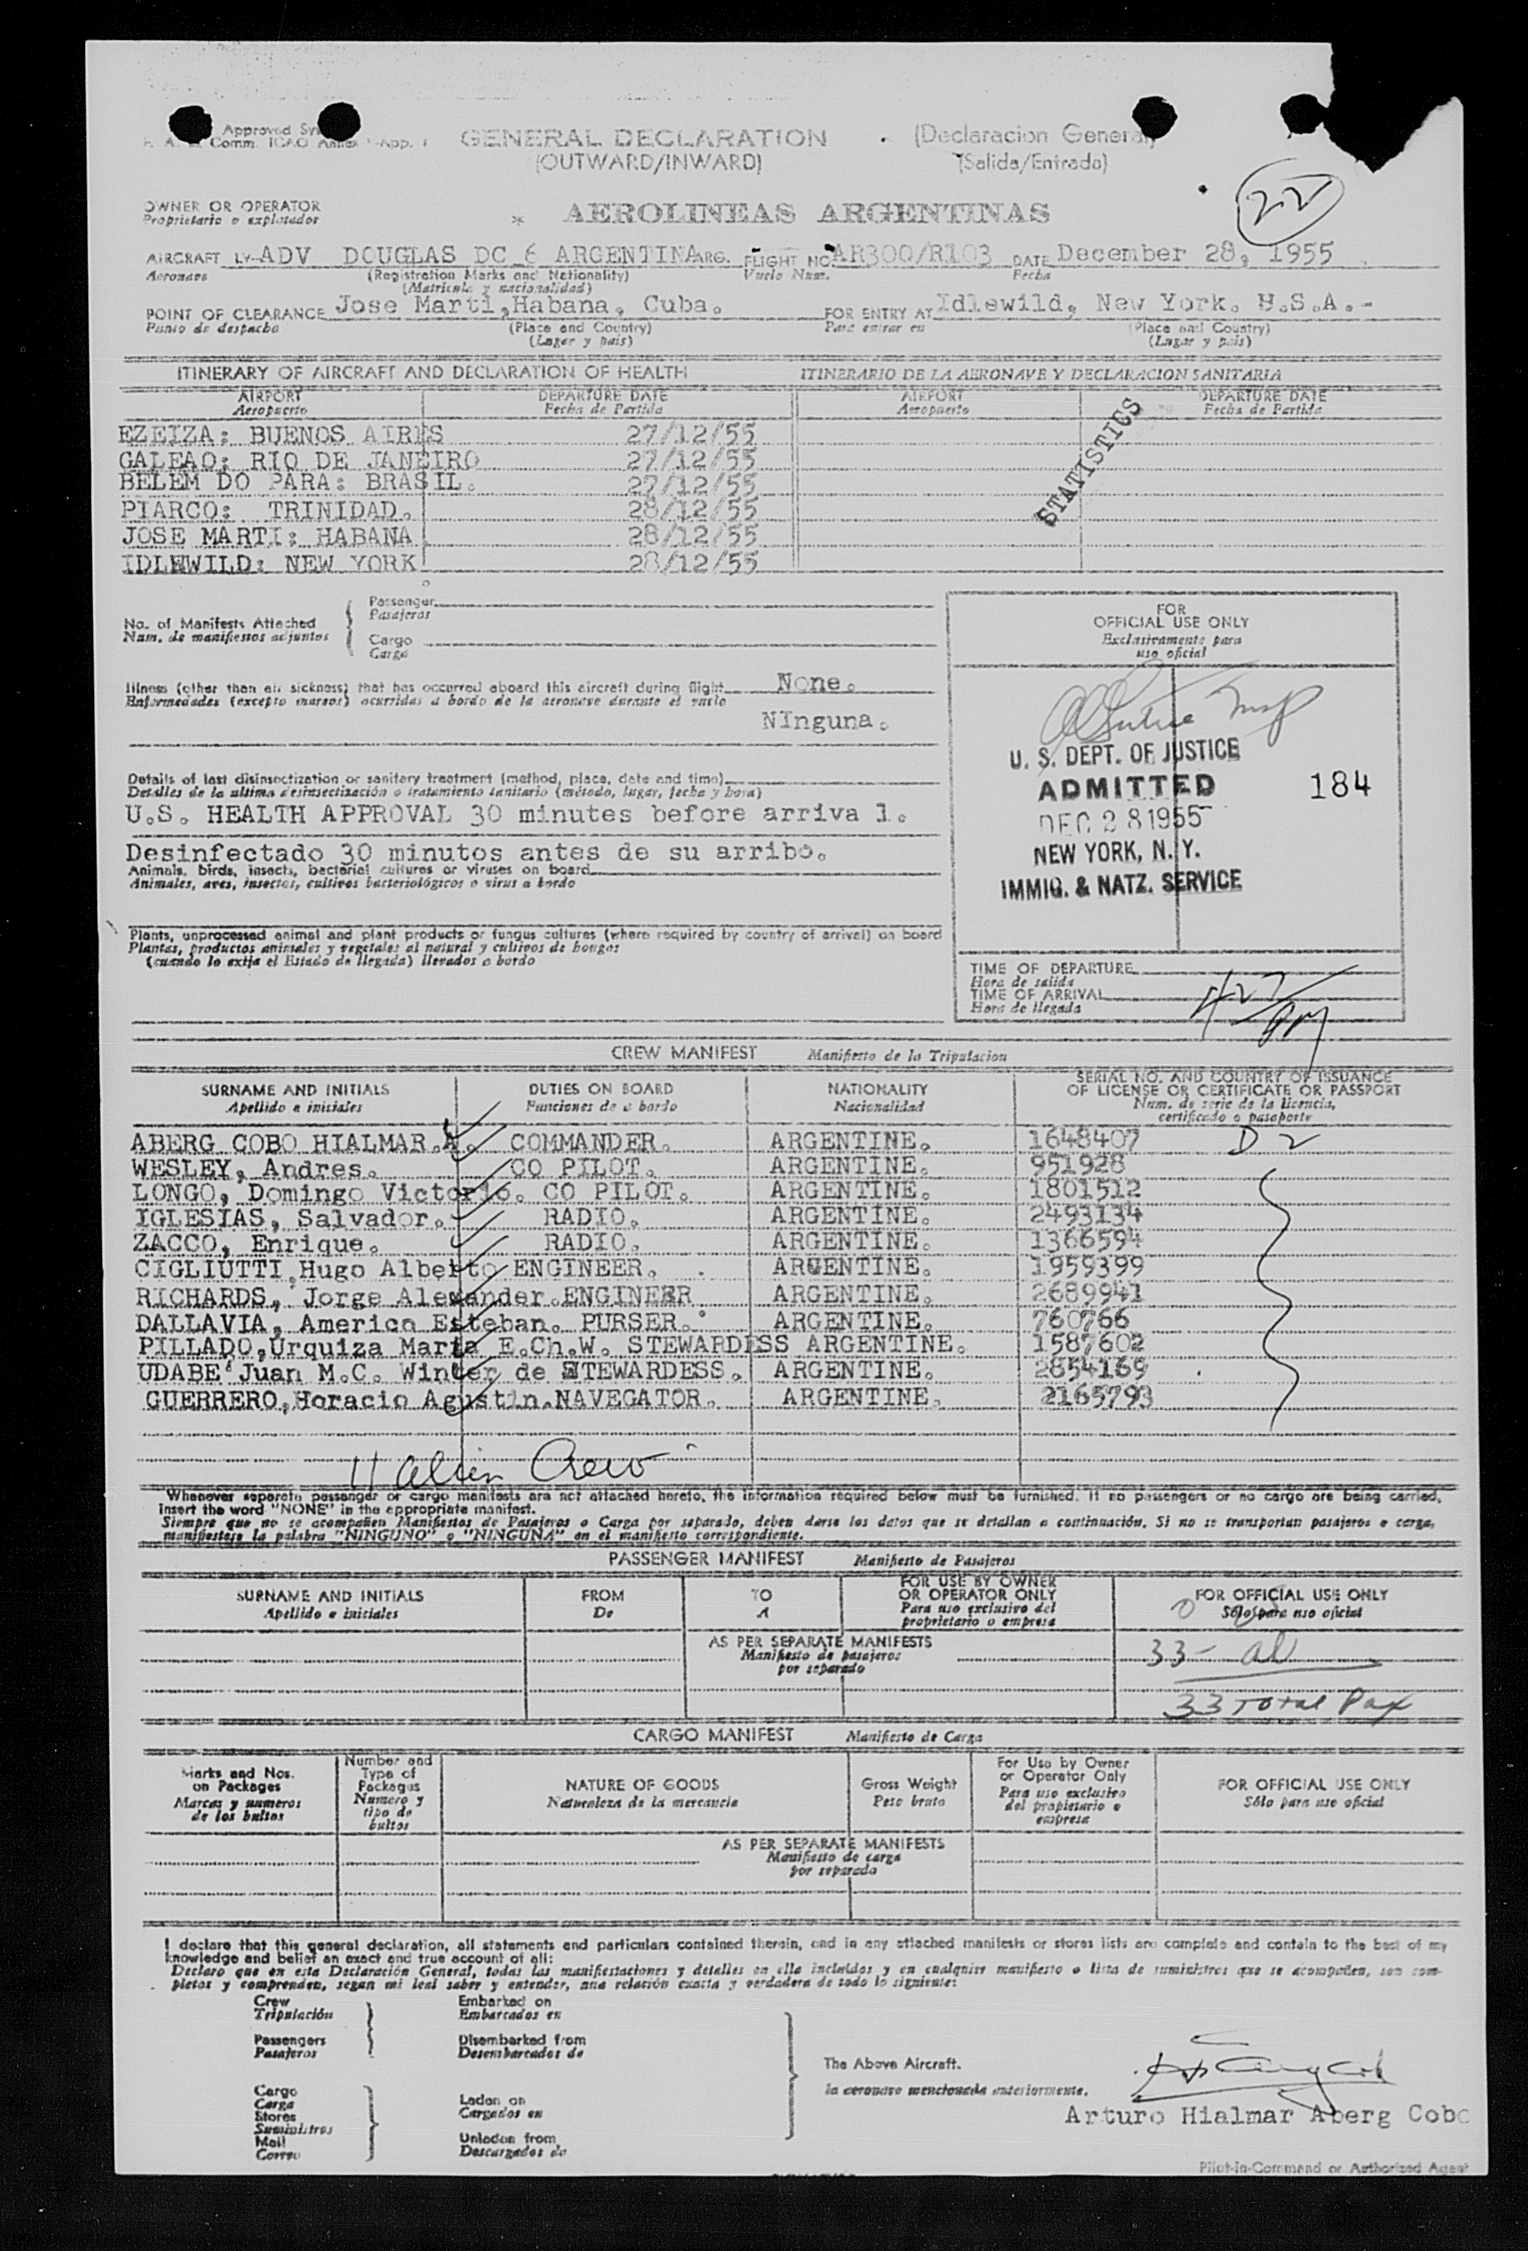 Approved
Comm. ICAO Annex -App.
GENERAL DECLARATION (Declaracion General)
(OUTWARD/INWARD) (Salida/Entrada)
22
OWNER OR OPERATOR
Proprietario o explotador
* AEROLINEAS ARGENTINAS
AIRCRAFT LV-ADV DOUGLAS DC 6 ARGENTINA ARG. FLIGHT NO. AR300/R103 DATE December 28, 1955
Aeronave (Registration Marks and Nationality) Vuelo Num. Fecha
(Matricula y nacionalidad)
POINT OF CLEARANCE Jose Marti, Habana, Cuba. FOR ENTRY AT Idlewild, New York. U.S.A.-
Punto de despacho (Place and Country) Para entrar en (Place and Country)
(Lugar y pais) (Lugar y pais)
ITINERARY OF AIRCRAFT AND DECLARATION OF HEALTH ITINERARIO DE LA AERONAVE Y DECLARACION SANITARIA
AIRPORT DEPARTURE DATE AIRPORT DEPARTURE DATE
Aeropuerto Fecha de Partida Aeropuerto Fecha de Partida
EZEIZA: BUENOS AIRES 27/12/55
GALEAO: RIO DE JANEIRO 27/12/55
BELEM DO PARA: BRASIL. 27/12/55
PIARCO: TRINIDAD. 28/12/55
JOSE MARTI: HABANA 28/12/55
IDLEWILD: NEW YORK 28/12/55
STATISTICS
No. of Manifests Attached
Num. de manifiestos adjuntos
Passenger
Pasajeros
Cargo
Carga
FOR
OFFICIAL USE ONLY
Exclusivamente para
uso oficial
Illness (other than air sickness) that has occurred aboard this aircraft during flight None.
Enfermedades (excepto mareos) ocurridas a bordo de la aeronave durante el vuelo
NInguna.
Details of last disinsectization or sanitary treatment (method, place, date and time)
Detalles de la ultima desinsectización o tratamiento sanitario (método, lugar, fecha y hora)
U.S. HEALTH APPROVAL 30 minutes before arriva l.
Desinfectado 30 minutos antes de su arribo.
Animals, birds, insects, bacterial cultures or viruses on board
Animales, aves, insectos, cultivos bacteriológicos o virus a bordo
Plants, unprocessed animal and plant products or fungus cultures (where required by country of arrival) on board
Plantas, productos animales y vegetales al natural y cultivos de hongos
(cuando lo exija el Estado de llegada) llevados a bordo
U. S. DEPT. OF JUSTICE
ADMITTED 184
DEC 28 1955
NEW YORK, N. Y.
IMMIG. & NATZ. SERVICE
TIME OF DEPARTURE
Hora de salida
TIME OF ARRIVAL
Hora de llegada
427 PM
CREW MANIFEST Manifiesto de la Tripulacion
SURNAME AND INITIALS DUTIES ON BOARD NATIONALITY SERIAL NO. AND COUNTRY OF ISSUANCE
OF LICENSE OR CERTIFICATE OR PASSPORT
Apellido e iniciales Funciones de a bordo Nacionalidad Num. de serie de la licencia,
certificado o pasaporte
ABERG COBO HIALMAR.A. COMMANDER. ARGENTINE. 1648407 D 2
WESLEY, Andres. CO PILOT. ARGENTINE. 951928
LONGO, Domingo Victorio. CO PILOT. ARGENTINE. 1801512
IGLESIAS, Salvador. RADIO. ARGENTINE. 2493134
ZACCO, Enrique. RADIO. ARGENTINE. 1366594
CIGLIUTTI,Hugo Alberto ENGINEER. ARGENTINE. 1959399
RICHARDS, Jorge Alexander.ENGINEER ARGENTINE. 2689941
DALLAVIA, America Esteban. PURSER. ARGENTINE. 760766
PILLADO,Urquiza Marta E.Ch.W. STEWARDESS ARGENTINE. 1587602
UDABE Juan M.C. Winter de STEWARDESS. ARGENTINE. 2854169
GUERRERO,Horacio Agustin.NAVEGATOR. ARGENTINE. 2165793
11 alien Crew
Whenever separate passenger or cargo manifests are not attached hereto, the information required below must be furnished. If no passengers or no cargo are being carried,
insert the word "NONE" in the appropriate manifest.
Siempre que no se acompañen Manifiestos de Pasajeros o Carga por separado, deben darse los datos que se detallan a continuación. Si no se transportan pasajeros o carga,
manifiestese la palabra "NINGUNO" o "NINGUNA" en el manifiesto correspondiente.
PASSENGER MANIFEST Manifiesto de Pasajeros
SURNAME AND INITIALS FROM TO FOR USE BY OWNER
OR OPERATOR ONLY FOR OFFICIAL USE ONLY
Apellido e iniciales De A Para uso exclusivo del
proprietario o empresa Sólo para uso oficial
AS PER SEPARATE MANIFESTS
Manifiesto de pasajeros
por separado
33 -
33 Total Pax
CARGO MANIFEST Manifiesto de Carga
Marks and Nos.
on Packages
Marcas y numeros
de los bultos
Number and
Type of
Packages
Numero y
tipo de
bultos
NATURE OF GOODS
Naturaleza de la mercancia
Gross Weight
Peso bruto
For Use by Owner
or Operator Only
Para uso exclusivo
del propietario o
empresa
FOR OFFICIAL USE ONLY
Sólo para uso oficial
AS PER SEPARATE MANIFESTS
Manifiesto de carga
por separado
I declare that this general declaration, all statements and particulars contained therein, and in any attached manifests or stores lists are complete and contain to the best of my
knowledge and belief an exact and true account of all:
Declaro que en esta Declaración General, todas las manifiestaciones y detalles en ella incluidos y en cualquier manifiesto o lista de suministros que se acompañen, son com-
pletos y comprenden, segun mi leal saber y entender, una relación exacta y verdadera de todo lo siguiente:
Crew
Tripulación
Passengers
Pasajeros
Cargo
Carga
Stores
Suministros
Mail
Correo
Embarked on
Embarcados en
Disembarked from
Desembarcados de
Laden on
Cargados en
Unladen from
Descargados de
The Above Aircraft.
la aeronave mencionada anteriormente.
Arturo Hialmar Aberg Cobo
Pilot-in-Command or Authorized Agent